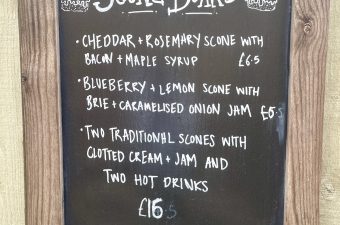 SCONE BOARD
• CHEDDAR + ROSEMARY SCONE WITH
BACON + MAPLE SYRUP £6.5
• BLUEBERRY + LEMON SCONE WITH
BRIE + CARAMELISED ONION JAM £6.5
• TWO TRADITIONAL SCONES WITH
CLOTTED CREAM + JAM AND
TWO HOT DRINKS
£16.5